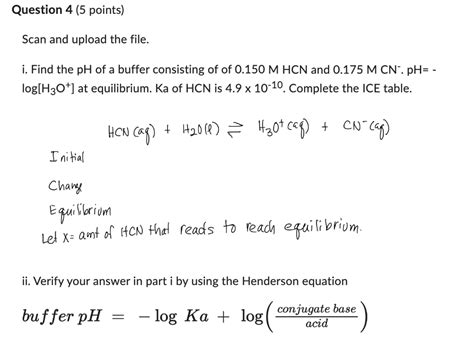 Question 4 (5 points)
Scan and upload the file.
i. Find the pH of a buffer consisting of of 0.150 M HCN and 0.175 M CN⁻. pH= -
log[H₃O⁺] at equilibrium. Ka of HCN is 4.9 x 10⁻¹⁰. Complete the ICE table.
HCN (aq) + H2O(l) ⇌ H3O+ (aq) + CN⁻ (aq)
Initial
Change
Equilibrium
Let x= amt of HCN that reacts to reach equilibrium.
ii. Verify your answer in part i by using the Henderson equation
buffer pH = − log Ka + log(conjugate base / acid)